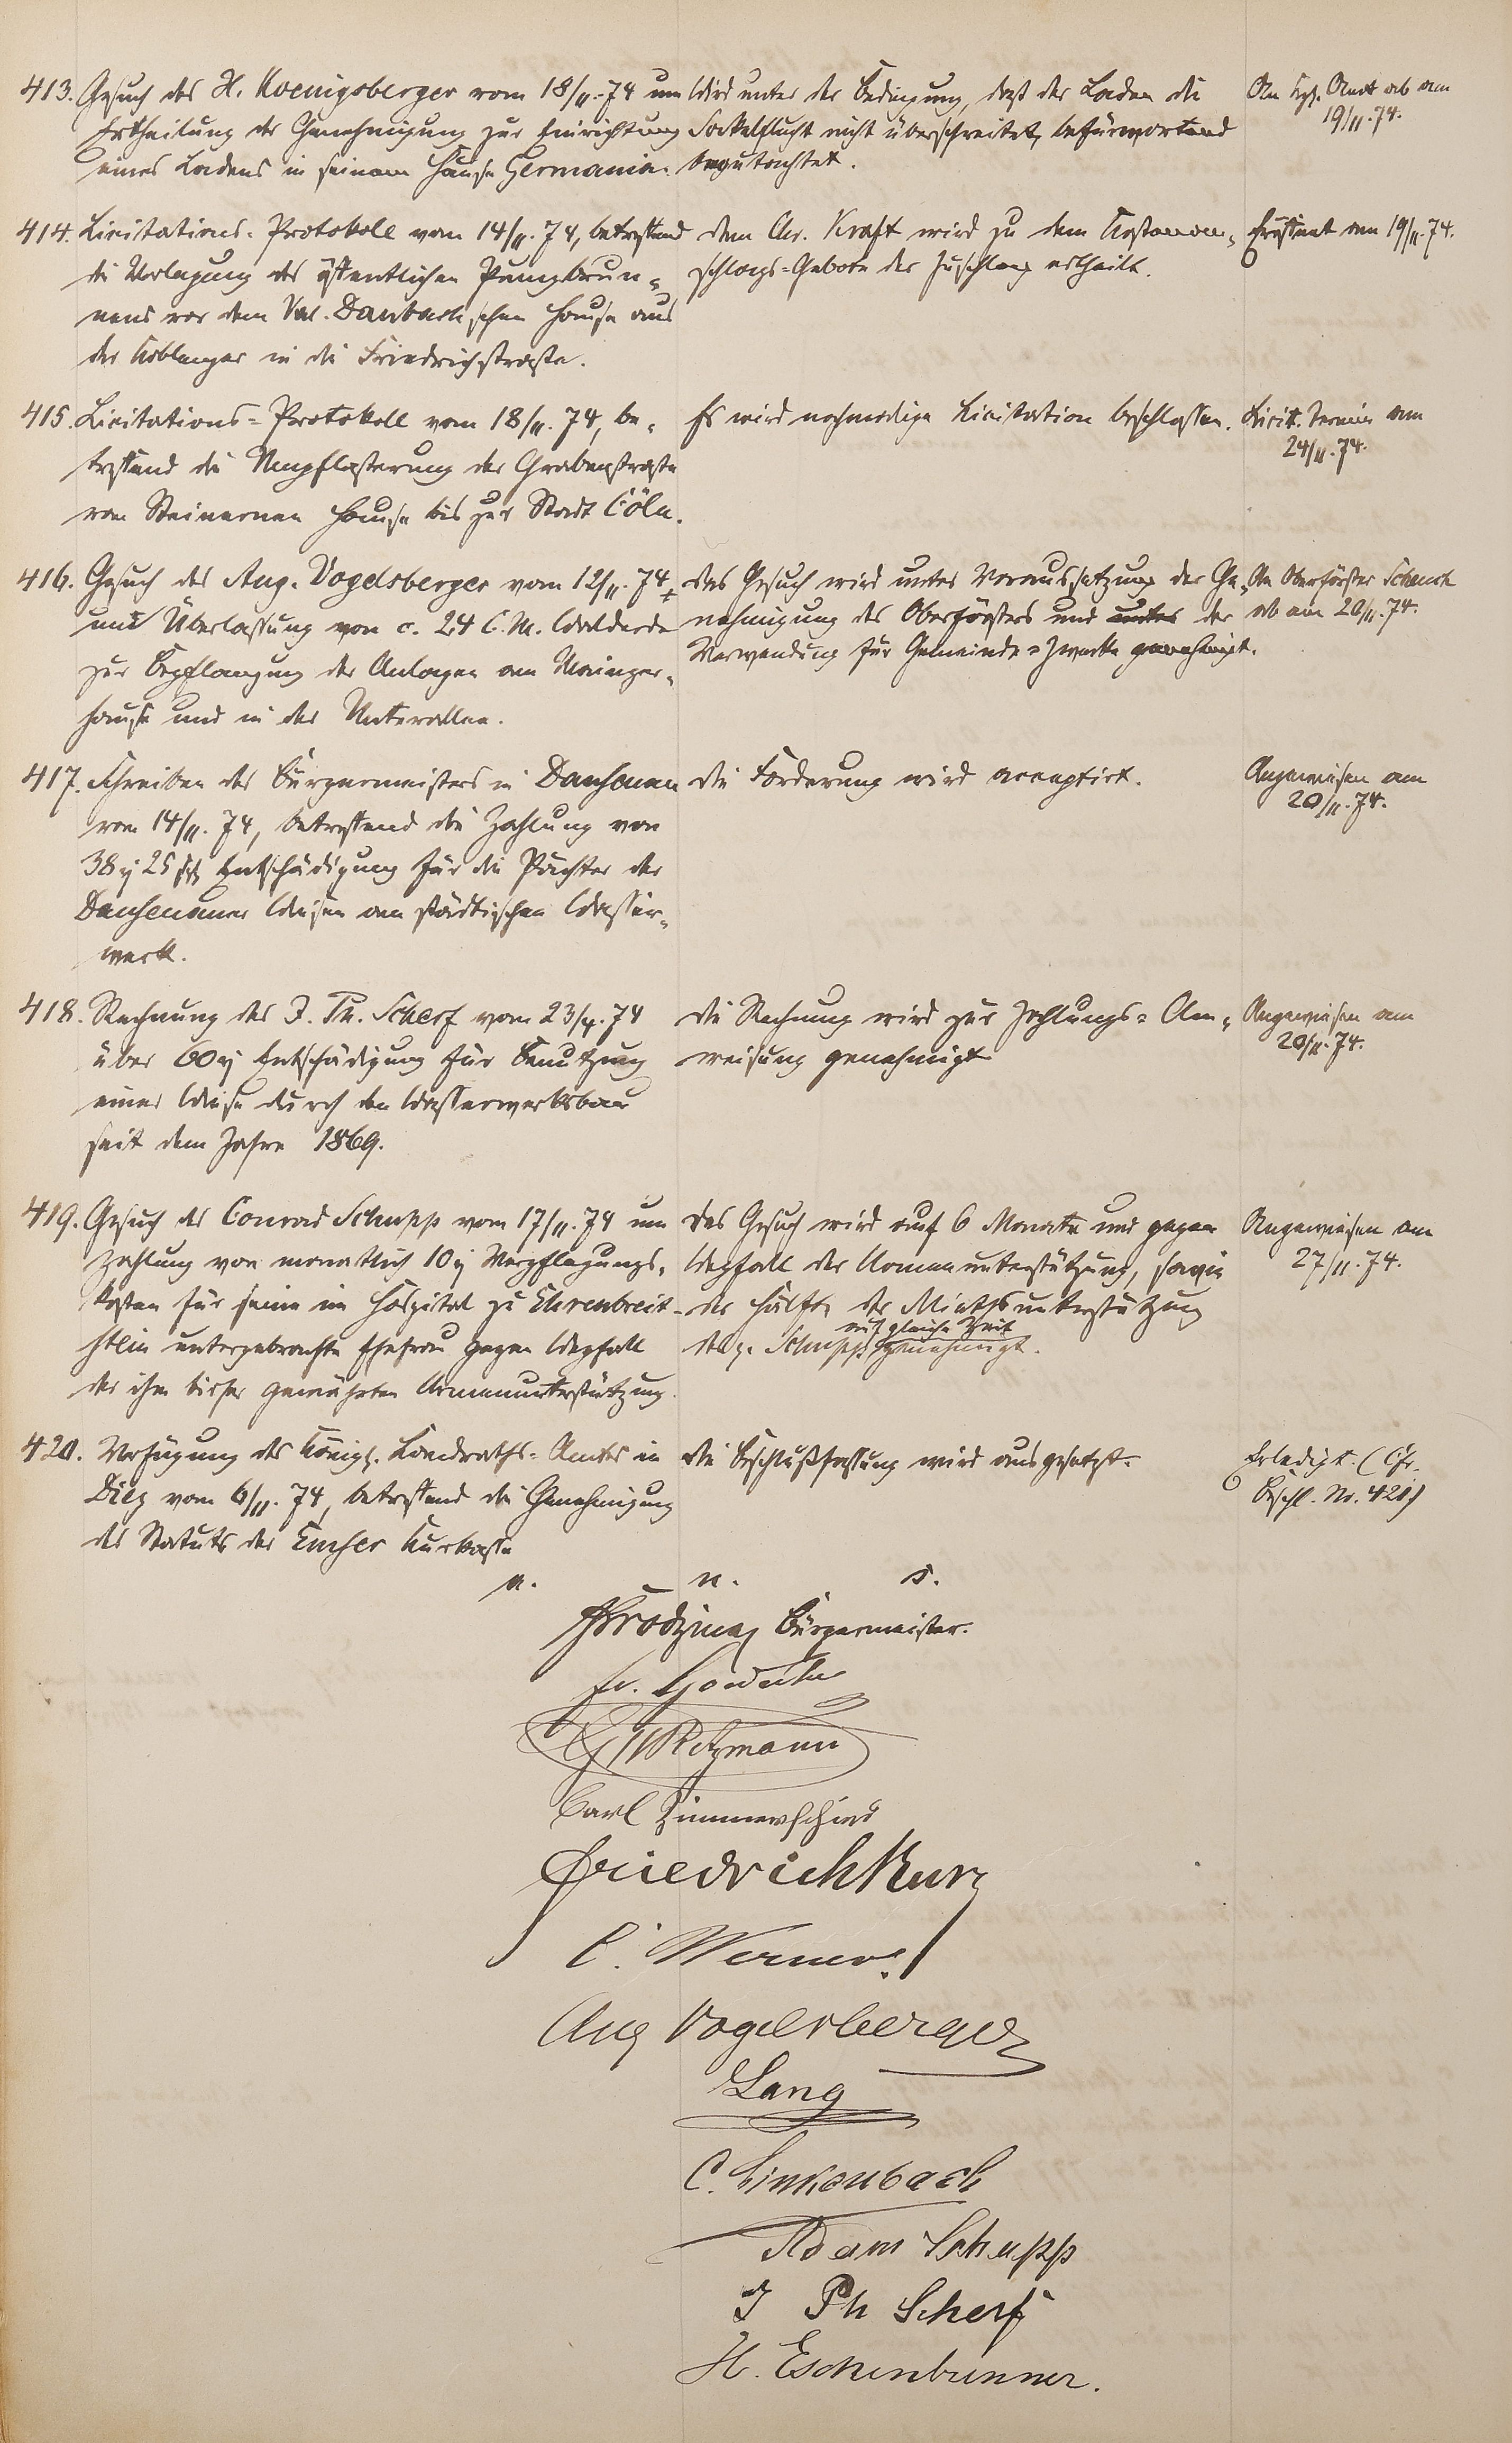 413. Gesuch des H. Koenigsberger vom 18/11.74 um
Ertheilung der Genehmigung zur Einrichtung
eines Ladens in seinem Hause Germania.
Wird unter der Bedingung, daß der Laden die
Sockelflucht nicht überschreitet, befürwortend
begutachtet.
An Kgl. Amt ab am
19/11.74.
414. Licitations-Protokoll vom 14/11.74, betreffend
die Verlegung des öffentlichen Pumpbrun-
nens vor dem Val. Daubach'schen Hause aus
der Koblenzer in die Friedrichstraße.
Dem Chr. Kraft wird zu dem Kostenan-
schlags-Gebote der Zuschlag ertheilt.
Eröffnet am 19/11.74.
415. Licitations-Protokoll vom 18/11.74, be-
treffend die Umpflasterung der Grabenstraße
vom Steinernen Hause bis zur Stadt Cöln.
Es wird nochmalige Licitation beschlossen.
Licitt. Termin am
24/11.74.
416. Gesuch des Aug. Vogelsberger vom 12/11.74
um Überlassung von c. 24 C.M. Walderde
zur Bepflanzung der Anlagen am Mainzer-
hause und in der Unterallee.
Das Gesuch wird unter Voraussetzung der Ge-
nehmigung des Oberförsters und unter der
Verwendung für Gemeinde-Zwecke genehmigt.
An Oberförster Schenck
ab am 20/11.74.
417. Schreiben des Bürgermeisters in Dausenau
vom 14/11.74, betreffend die Zahlung von
38 25 Entschädigung für die Pächter der
Dausenauer Wiesen am städtischen Wasser-
werk.
Die Forderung wird acceptirt.
Angewiesen am
20/11.74.
418. Rechnung des J. Ph. Scherf vom 23/4.74
über 60 Entschädigung für Benutzung
einer Wiese durch den Wasserwerksbau
seit dem Jahre 1869.
Die Rechnung wird zur Zahlungs-An-
weisung genehmigt
Angewiesen am
20/11.74.
419. Gesuch des Conrad Schupp vom 17/11.74 um
Zahlung von monatlich 10 Verpflegungs-
kosten für seine im Hospital zu Ehrenbreit-
stein untergebrachte Ehefrau gegen Wegfall
der ihm bisher gewährten Armenunterstützung.
Das Gesuch wird auf 6 Monate und gegen
Wegfall der Armenunterstützung, sowie
der Hälfte der Miethsunterstützung
auf gleiche Zeit
des p. Schupp genehmigt.
Angewiesen am
27/11.74.
420. Verfügung des Königl. Landraths-Amtes in
Diez vom 6/11.74, betreffend die Genehmigung
des Statuts der Emser Kurkasse
Die Beschlußfassung wird ausgesetzt.
Erledigt. (Cfr.
Beschl. No. 421)
v. w. o.
Bürgermeister.
Carl Zimmerschied
Friedrich Kurz
C. Werner
Aug Vogelsberger
Lang
C. Linkenbach
Adam Schupp
J Ph Scherf
H. Eschenbrenner.